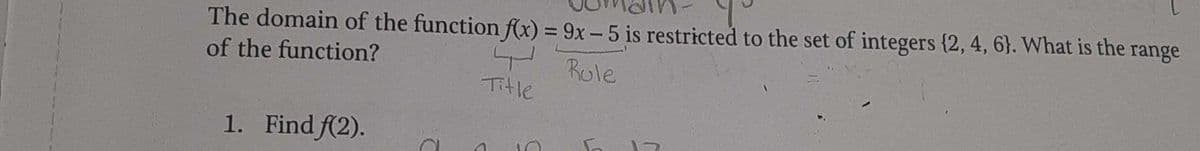 The domain of the function f(x) = 9x – 5 is restricted to the set of integers {2, 4, 6}. What is the range
of the function?
Title
Rule
1. Find f(2).